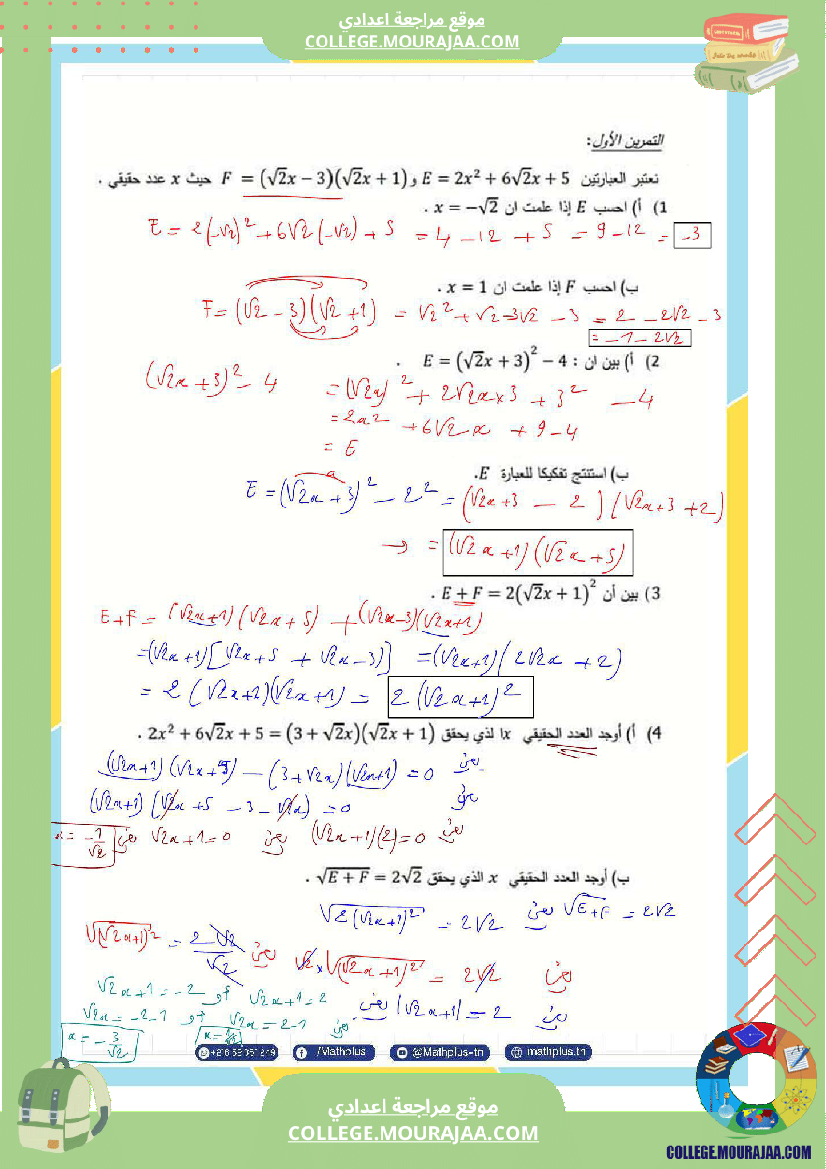 موقع مراجعة اعدادي
COLLEGE.MOURAJAA.COM
التمرين الأول:
نعتبر العبارتين E = 2x² + 6√2x + 5 و F = (√2x − 3)(√2x + 1) حيث x عدد حقيقي .
1) أ) احسب E إذا علمت ان x = −√2 .
E = 2(−√2)² + 6√2(−√2) + 5 = 4 − 12 + 5 = 9 − 12 = −3
ب) احسب F إذا علمت ان x = 1 .
F = (√2 − 3)(√2 + 1) = √2² + √2 − 3√2 − 3 = 2 − 2√2 − 3
= −1 − 2√2
2) أ) بين ان : E = (√2x + 3)² − 4 .
(√2x + 3)² − 4 = (√2x)² + 2√2x × 3 + 3² − 4
= 2x² + 6√2x + 9 − 4
= E
ب) استنتج تفكيكا للعبارة E.
E = (√2x + 3)² − 2² = (√2x + 3 − 2)(√2x + 3 + 2)
→ = (√2x + 1)(√2x + 5)
3) بين أن E + F = 2(√2x + 1)² .
E + F = (√2x + 1)(√2x + 5) + (√2x − 3)(√2x + 1)
= (√2x + 1)[√2x + 5 + √2x − 3)] = (√2x + 1)(2√2x + 2)
= 2(√2x + 1)(√2x + 1) = 2(√2x + 1)²
4) أ) أوجد العدد الحقيقي x ا لذي يحقق 2x² + 6√2x + 5 = (3 + √2x)(√2x + 1) .
يعني (√2x + 1)(√2x + 5) − (3 + √2x)(√2x + 1) = 0
يعني (√2x + 1)(√2x + 5 − 3 − √2x) = 0
يعني (√2x + 1)(2) = 0 يعني √2x + 1 = 0 يعني x = −1/√2
ب) أوجد العدد الحقيقي x الذي يحقق √(E + F) = 2√2 .
√(E + F) = 2√2 يعني √(2(√2x + 1)²) = 2√2
يعني √2 × √((√2x + 1)²) = 2√2 يعني √((√2x + 1)²) = 2√2/√2
يعني |√2x + 1| = 2 يعني √2x + 1 = 2 أو √2x + 1 = −2
يعني √2x = 2 − 1 أو √2x = −2 − 1
x = −3/√2
/Mathplus
@Mathplus-tn
mathplus.tn
موقع مراجعة اعدادي
COLLEGE.MOURAJAA.COM
COLLEGE.MOURAJAA.COM